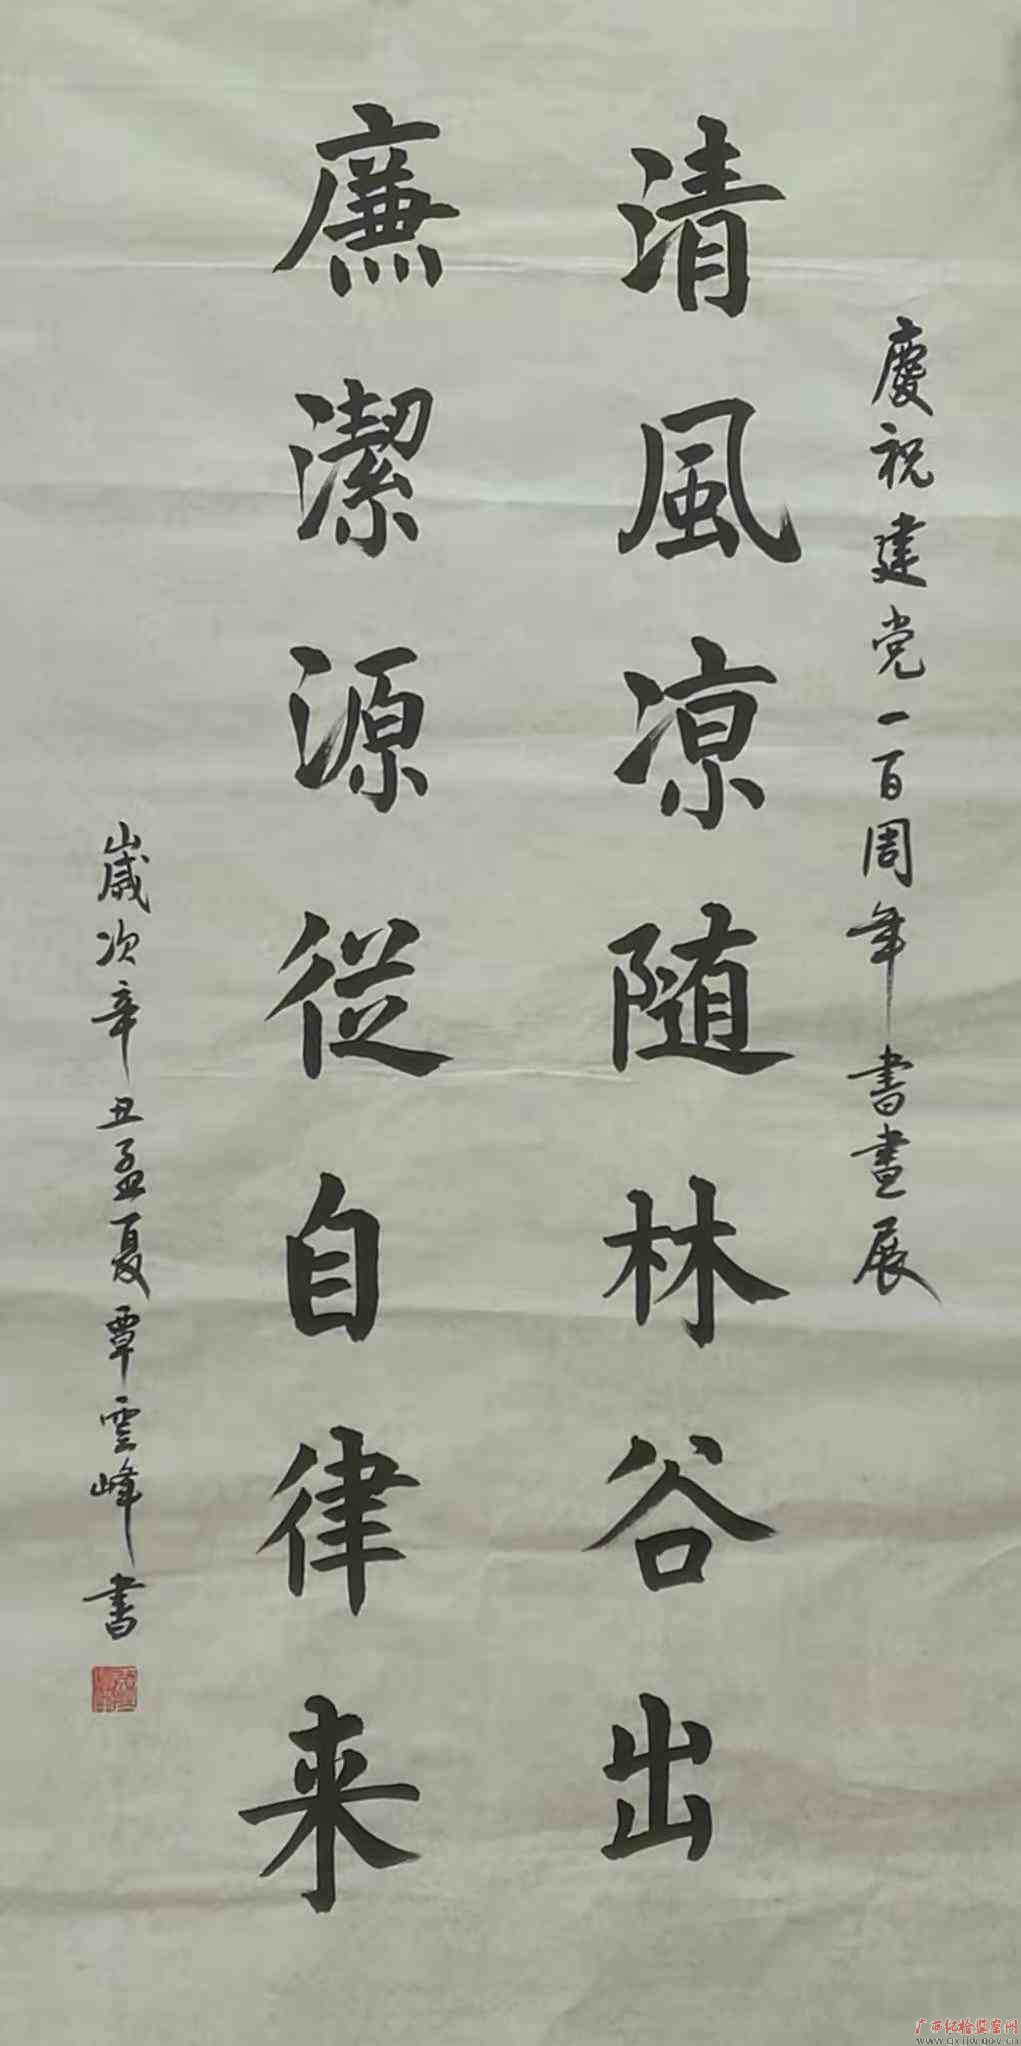 慶祝建党一百周年書畫展
清風凉随林谷出
廉潔源従自律来
歲次辛丑孟夏覃雲峰書
广西纪检监察网
www.gxjjw.gov.cn